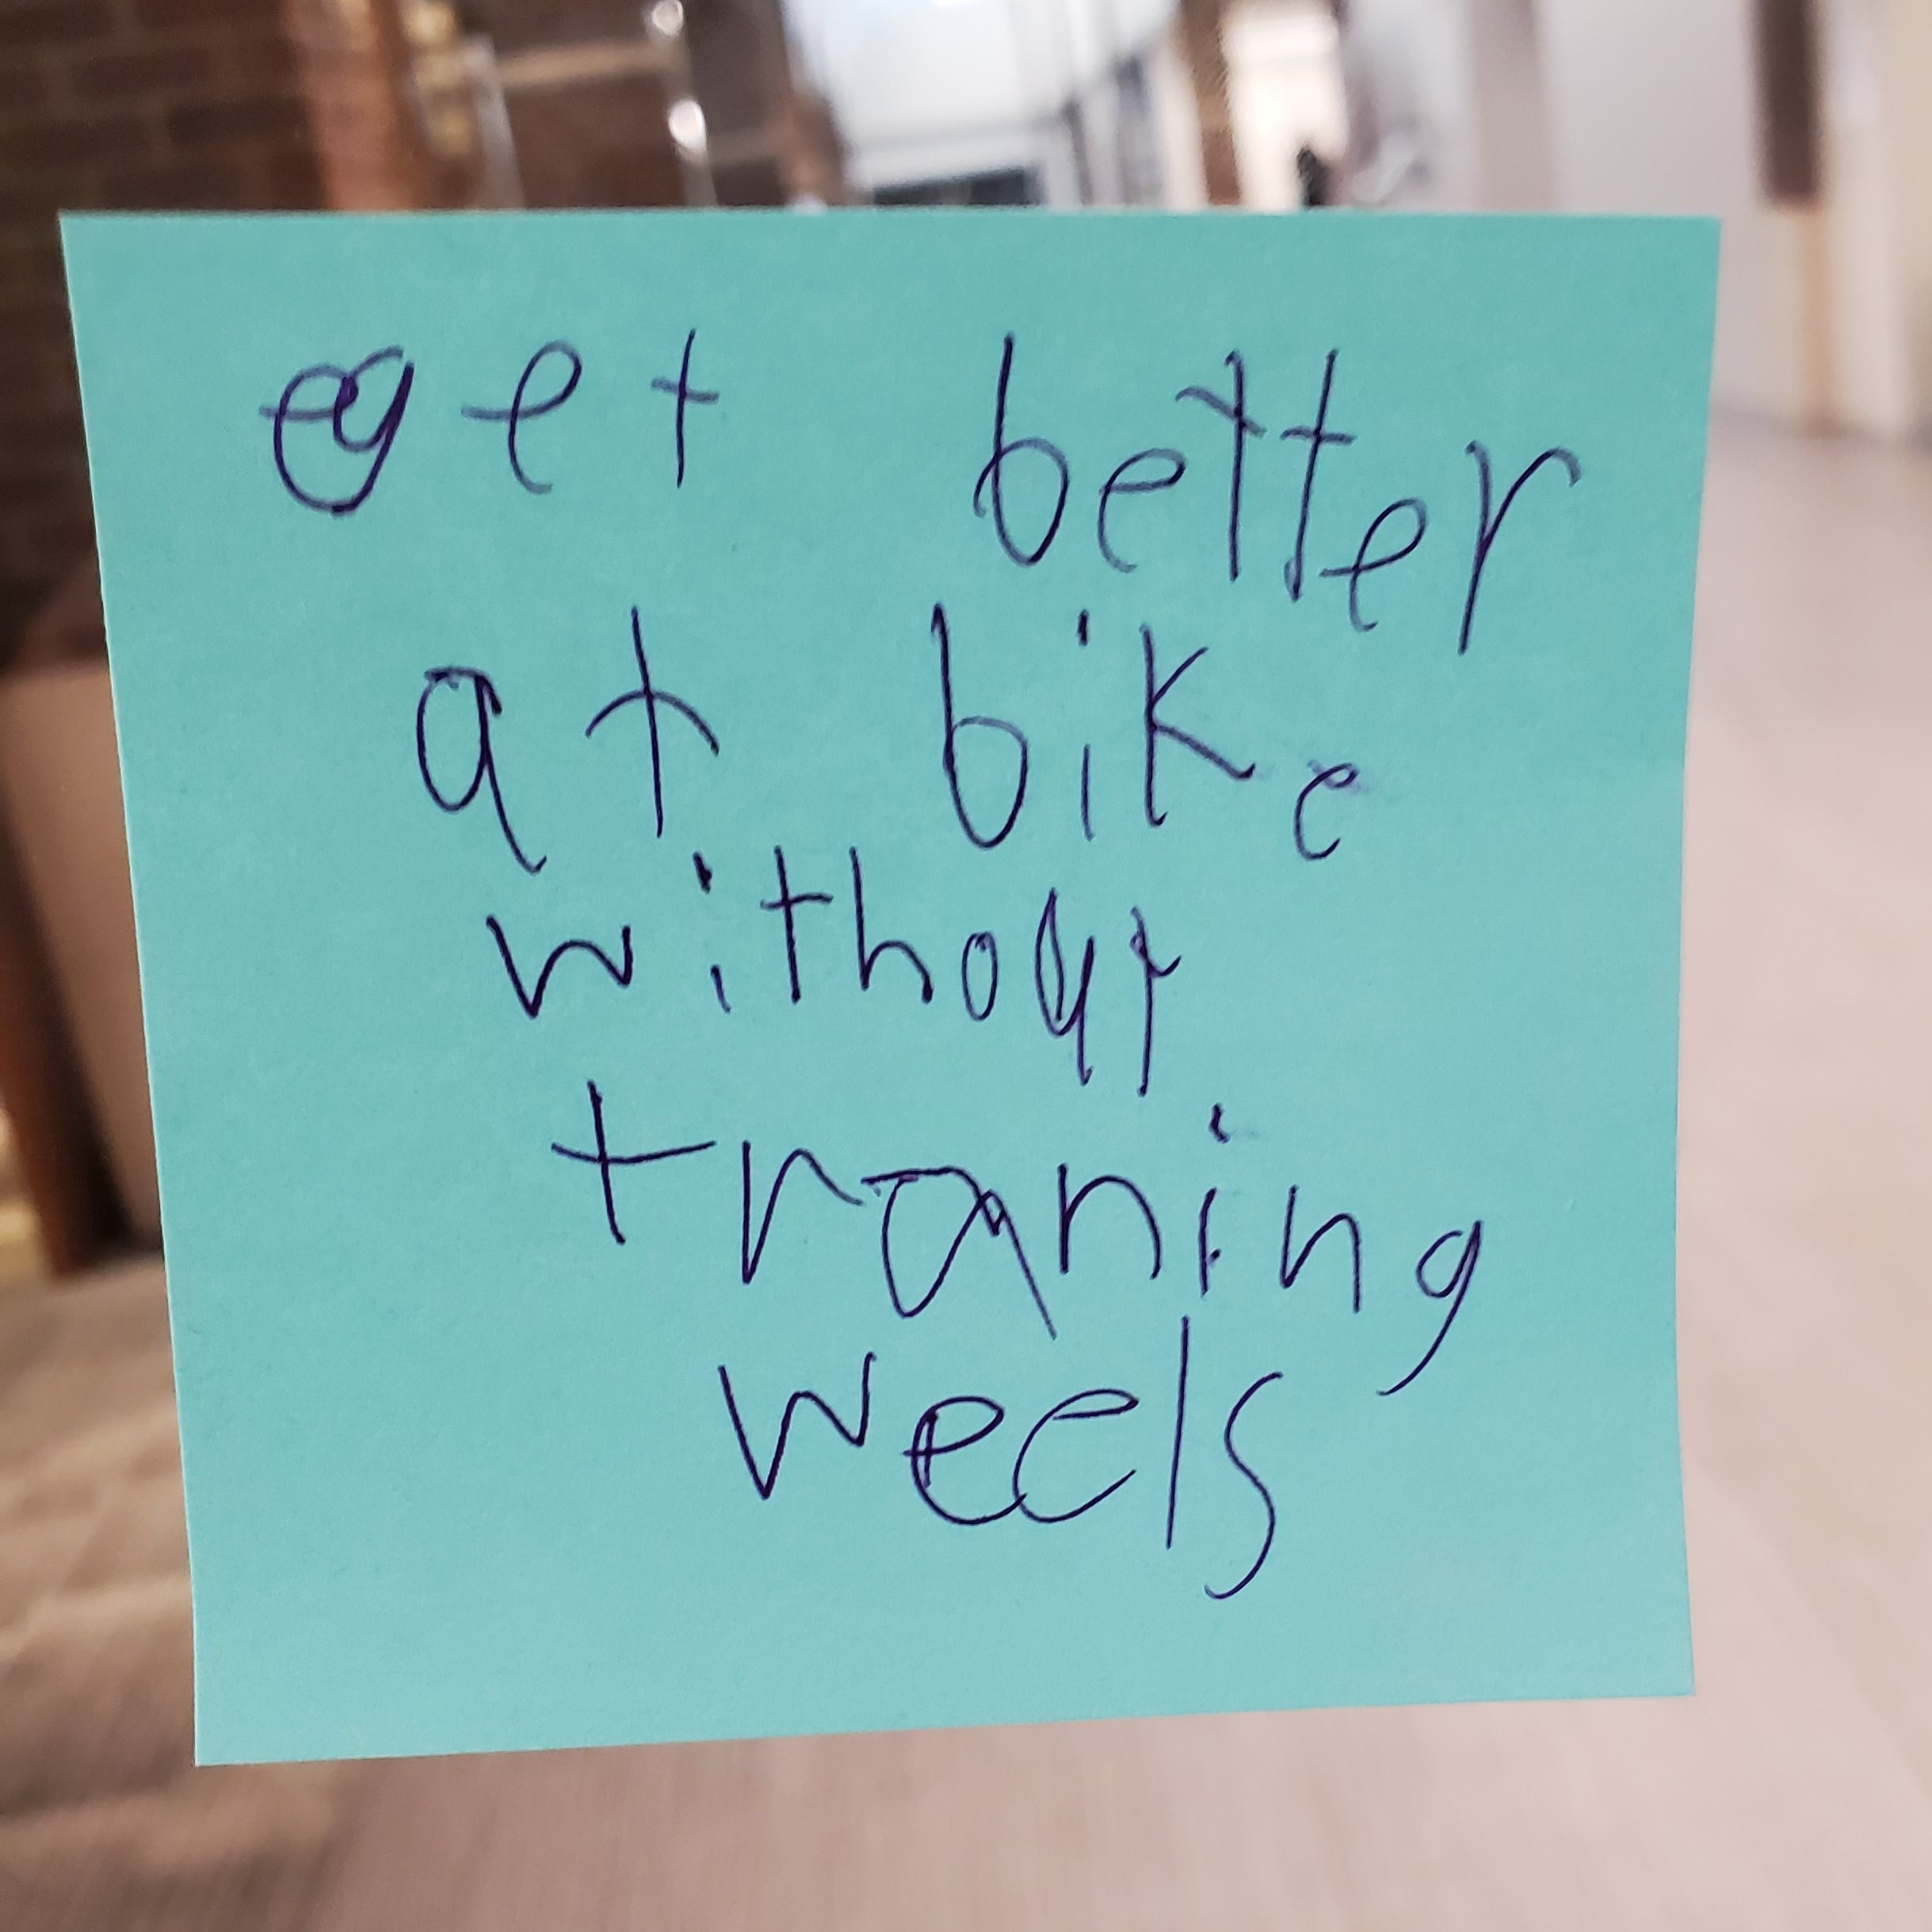 get better
at bike
without
traning
weels